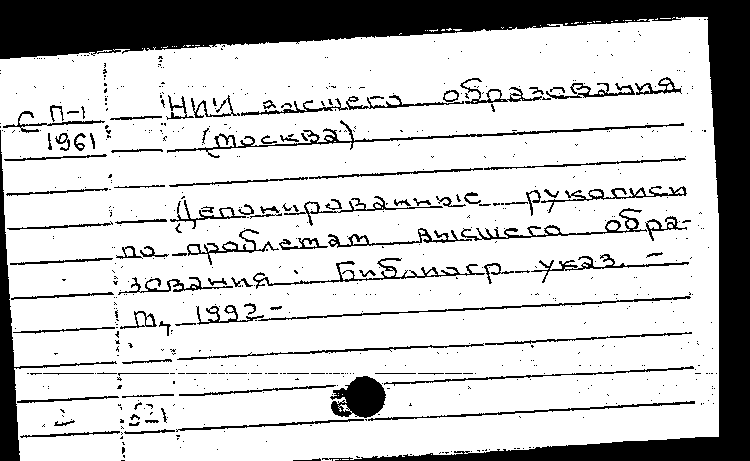 С П-1
1961
НИИ высшего образования
(Москва)
Депонированные рукописи
по проблемам высшего обра-
зования. Библиогр указ. -
М, 1992-